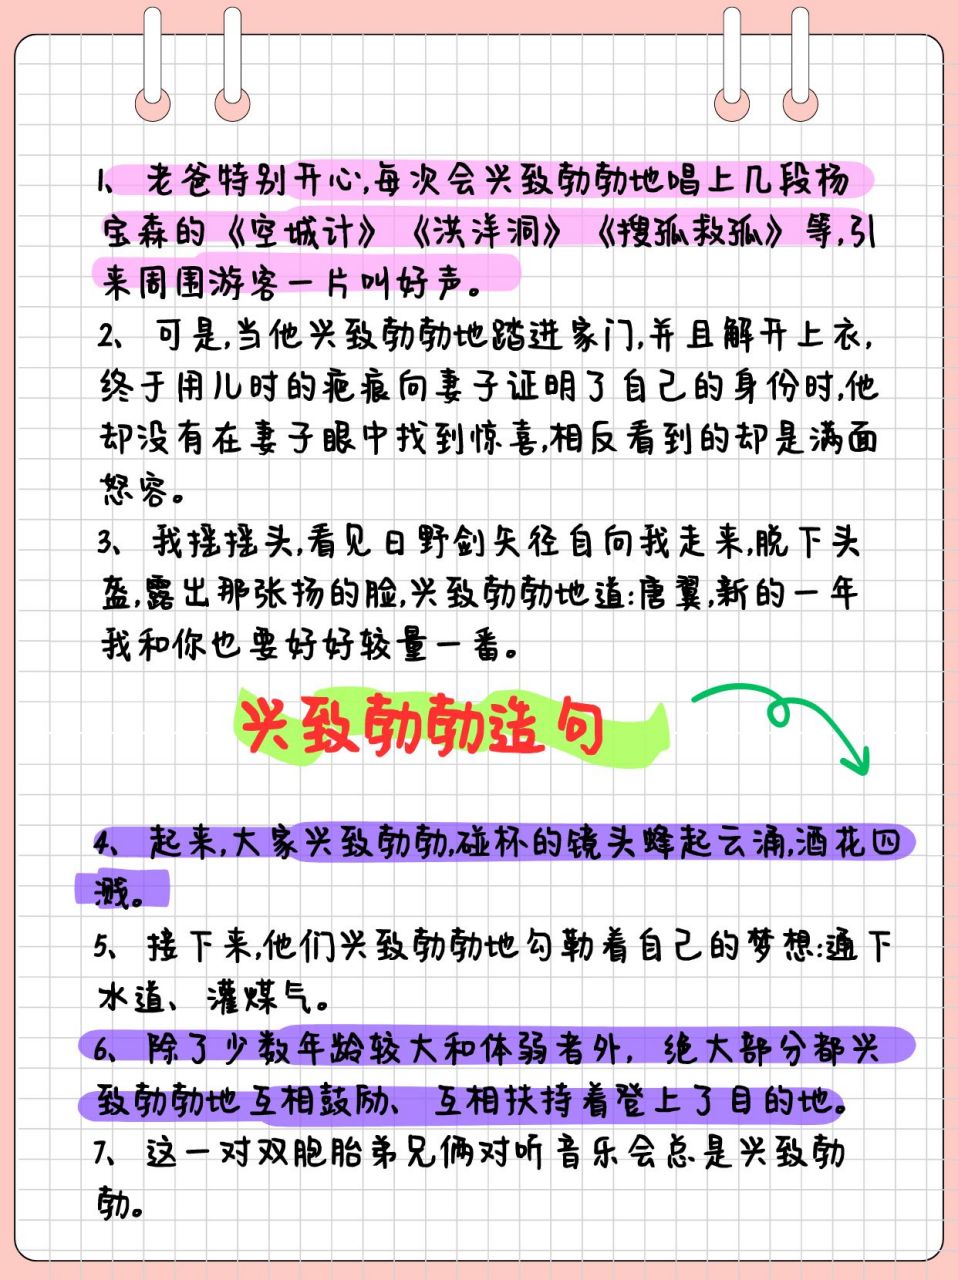 1、老爸特别开心,每次会兴致勃勃地唱上几段杨
宝森的《空城计》《洪洋洞》《搜孤救孤》等,引
来周围游客一片叫好声。
2、可是,当他兴致勃勃地踏进家门,并且解开上衣,
终于用儿时的疤痕向妻子证明了自己的身份时,他
却没有在妻子眼中找到惊喜,相反看到的却是满面
怒容。
3、我摇摇头,看见日野剑矢径自向我走来,脱下头
盔,露出那张扬的脸,兴致勃勃地道:唐翼,新的一年
我和你也要好好较量一番。
兴致勃勃造句
4、起来,大家兴致勃勃,碰杯的镜头蜂起云涌,酒花四
溅。
5、接下来,他们兴致勃勃地勾勒着自己的梦想:通下
水道、灌煤气。
6、除了少数年龄较大和体弱者外,绝大部分都兴
致勃勃地互相鼓励、互相扶持着登上了目的地。
7、这一对双胞胎弟兄俩对听音乐会总是兴致勃
勃。